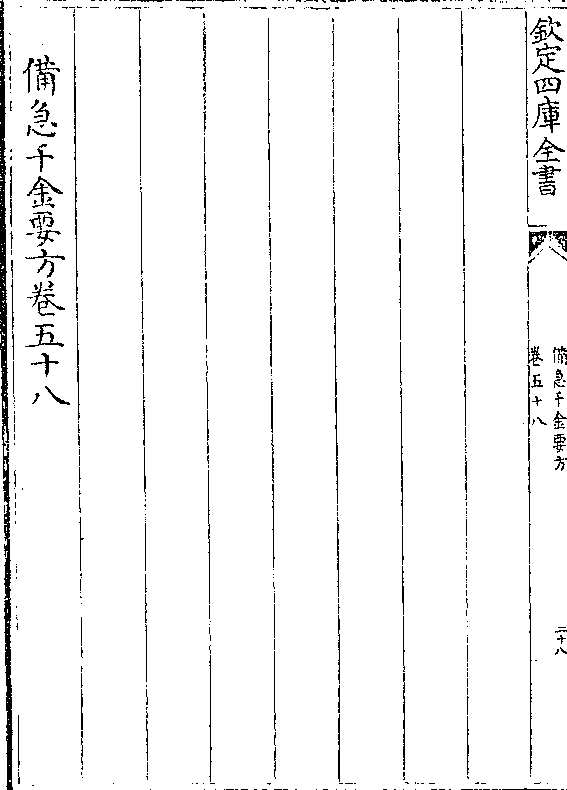 欽定四庫全書
備急千金要方
卷五十八
二十八
備急千金要方卷五十八